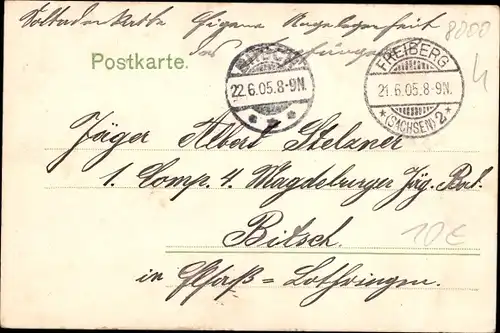 Soldatenkarte Eigene Angelegenheit
des Empfängers
Postkarte.
BITSCH
22.6.05.8-9N.
FREIBERG
21.6.05.8-9N.
(SACHSEN) 2
8000
4
Jäger Albert Stelzner
1. Comp. 4. Magdeburger Jäg. Bat.
Bitsch.
10€
in Elsaß=Lothringen.